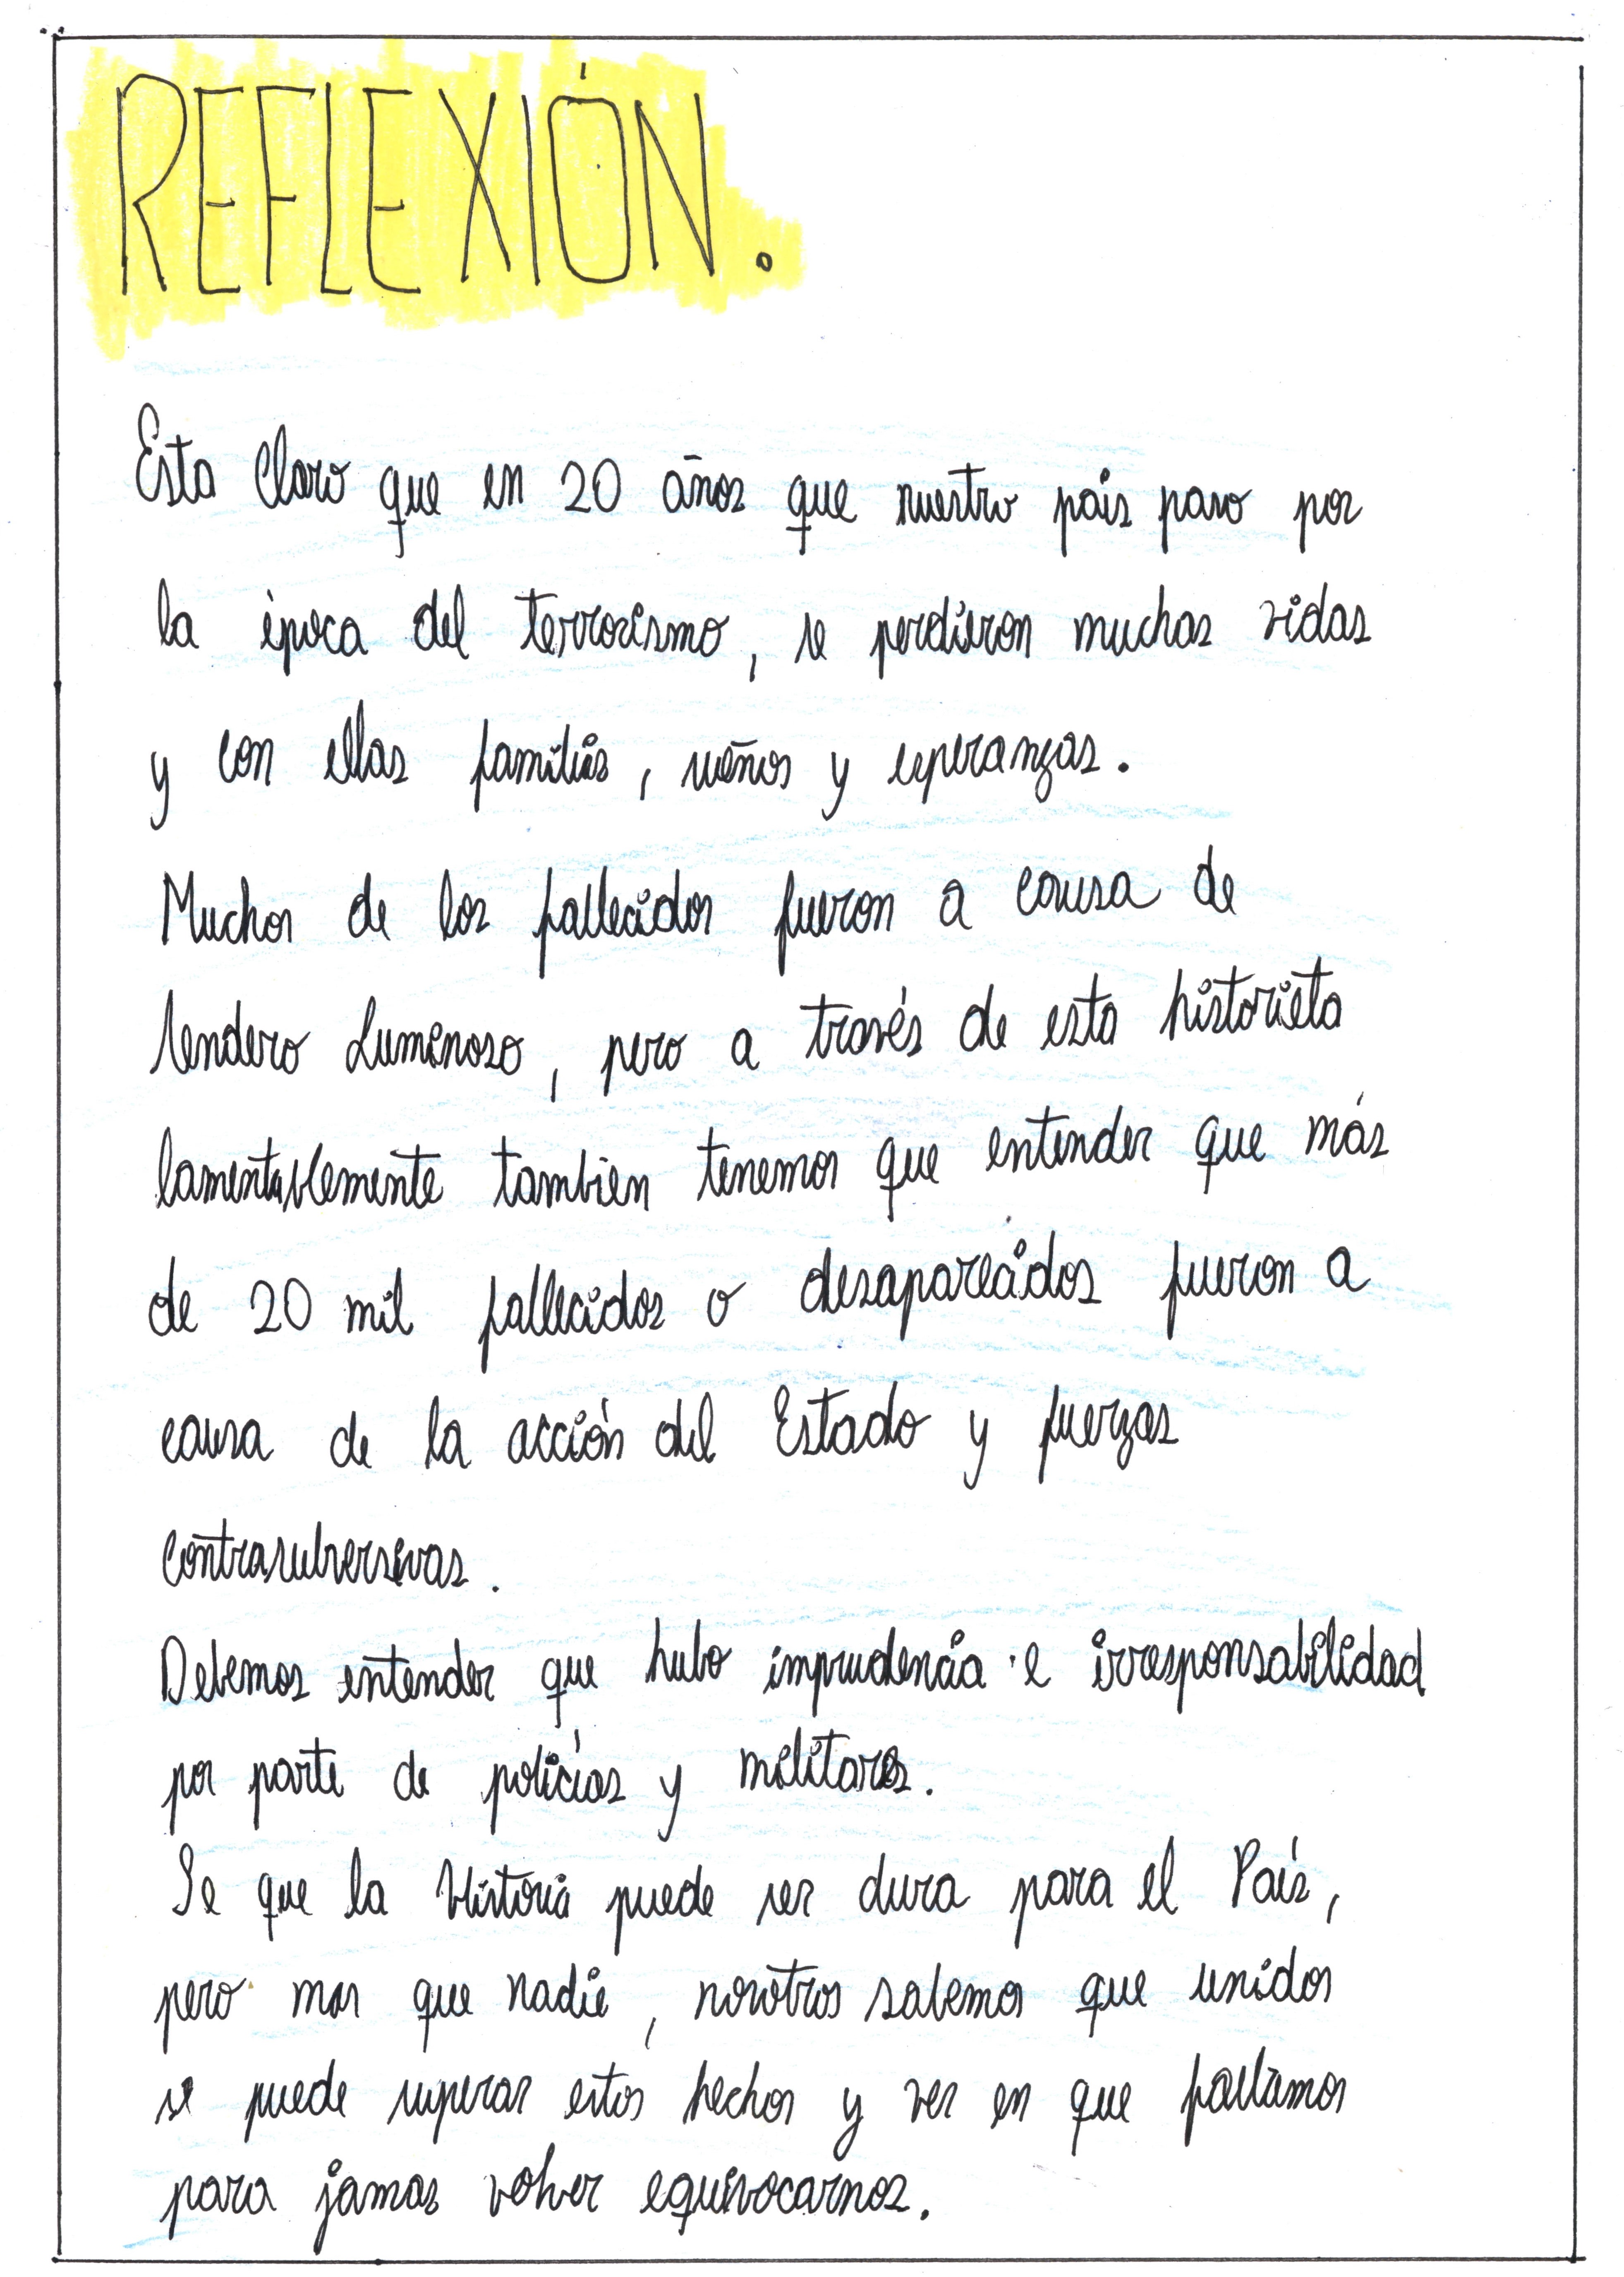 REFLEXIÓN.
Esta Claro que en 20 años que nuestro pais paso por
la época del terrorismo, se perdieron muchas vidas
y con ellas familias, sueños y esperanzas.
Muchos de los fallecidos fueron a causa de
Sendero Luminoso, pero a través de esta historieta
lamentablemente tambien tenemos que entender que más
de 20 mil fallecidos o desaparecidos fueron a
causa de la acción del Estado y fuerzas
contrasubversivas.
Debemos entender que hubo imprudencia e irresponsabilidad
por parte de policías y militares.
Se que la Historia puede ser dura para el País,
pero mas que nadie, nosotros sabemos que unidos
se puede superar estos hechos y ver en que fallamos
para jamas volver equivocarnos.